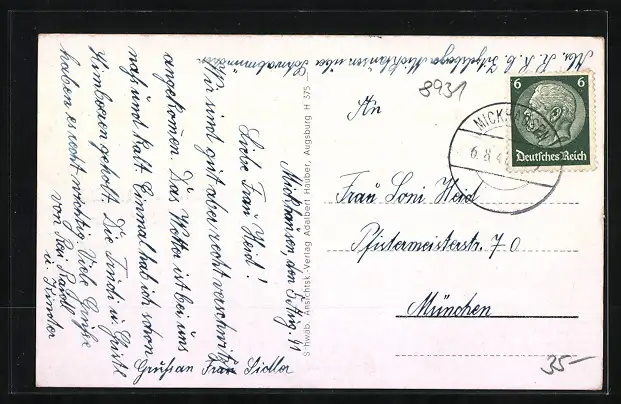 Mickhausen den 5. Aug. 41
Liebe Frau Heid!
Wir sind gut aber recht verschwitzt
angekommen. Das Wetter ist bei uns
naß und kalt. Einmal hab ich schon
Himbeeren geholt. Die Trudi u. Christl
haben es recht wichtig. Viele Grüße
von
u. Kinder
Gruß an Frau Sidler
Schwäb. Ansichtsk.-Verlag Adalbert Hauber, Augsburg H 375
Mickhausen über Schwabmünchen
8931
An
Frau Loni Heid
Pfistermeisterstr. 70
München
6 6
Deutsches Reich
MICKHAUSEN
6.8.4
35-